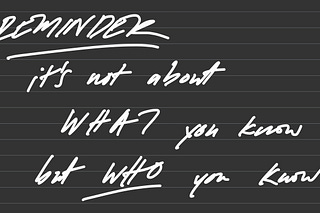 REMINDER
it's not about
WHAT you know
but WHO you know